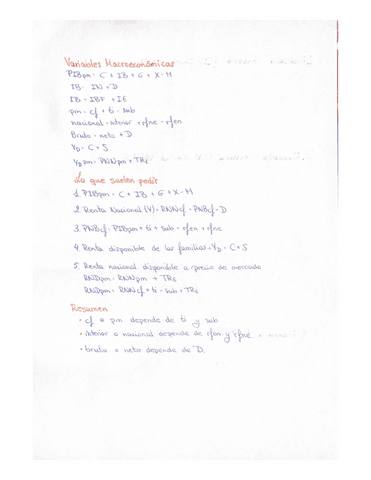 Variables Macroeconómicas
PIBpm = C + IB + G + X - M
IB = IN + D
IB = IBF + IE
pm = cf + ti - sub
nacional = interior + rfne - rfen
Bruto = neto + D
YD = C + S
YD pm = PNNpm + TRs
Lo que suelen pedir
1. PIBpm = C + IB + G + X - M
2. Renta Nacional (Y) = RNNcf = PNBcf - D
3. PNBcf = PIBpm + ti + sub - rfen + rfne
4. Renta disponible de las familias = YD = C + S
5. Renta nacional disponible a precio de mercado
RNDpm = RNNpm + TRs
RNDpm = RNNcf + ti - sub + TRs
Resumen
• cf o pm depende de ti y sub
• interior o nacional depende de rfen y rfne
• bruto o neto depende de D.